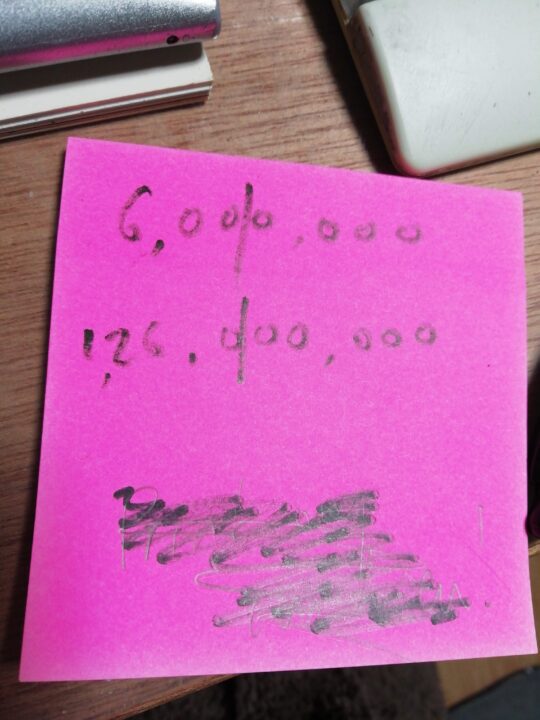 6,000,000
1,26,000,000